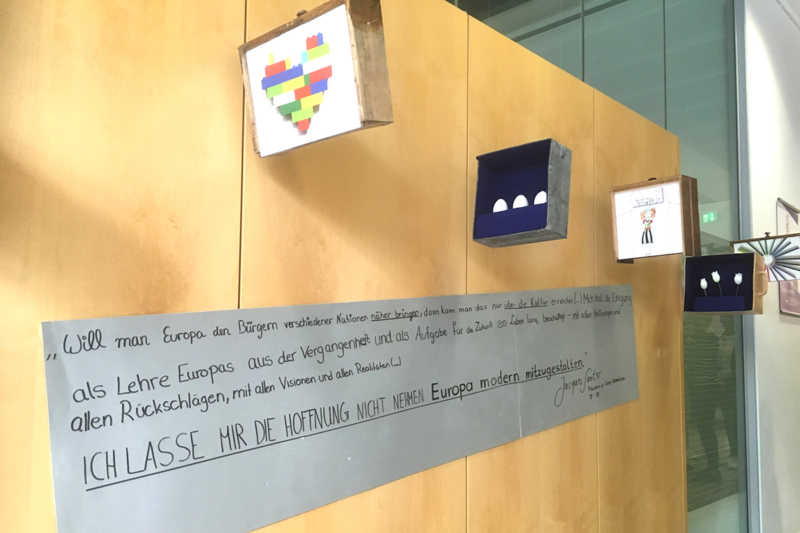 „Will man Europa den Bürgern verschiedener Nationen näher bringen, dann kann man das nur über die Kultur erreichen (...) Mich hat die Einigung
als Lehre Europas aus der Vergangenheit und als Aufgabe für die Zukunft ein Leben lang beschäftigt - mit allen Hoffnungen und
allen Rückschlägen, mit allen Visionen und allen Realitäten (...)
ICH LASSE MIR DIE HOFFNUNG NICHT NEHMEN Europa modern mitzugestalten."